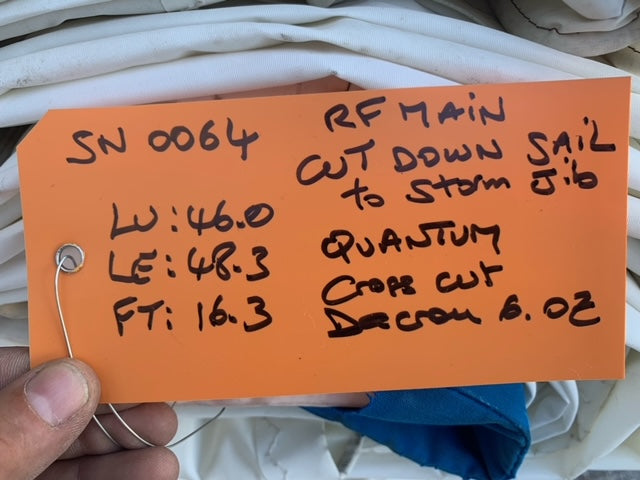 SN 0064
LU: 46.0
LE: 48.3
FT: 16.3
RF MAIN
CUT DOWN SAIL
to Storm Jib
QUANTUM
Cross cut
Dacron 6.0Z